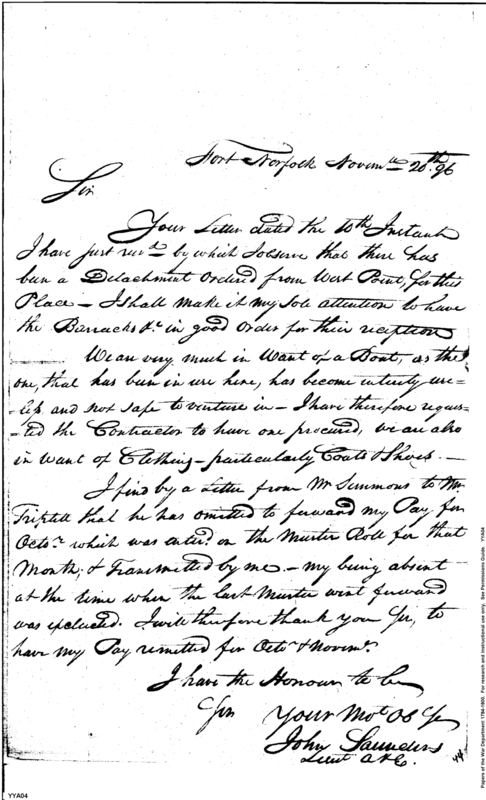 Fort Norfolk Novemr 20th. 96
Sir
Your Letter dated the 10th Instant
I have just recvd by which I observe that there has
been a Detachment Ordered from West Point, for this
Place – I shall make it my sole attention to have
the Barracks &c in good Order for their reception
We are very much in Want of a Boat, as the
one, that has been in use here, has become intirely use=
=less, and not safe to venture in – I have therefore reques=
=ted the Contractor to have one procured, we are also
in Want of Clothing – particularly Coats & Shoes. –
I find by a Letter from Mr Simmons to Mr
Triplett that he has omitted to forward my Pay for
Octor. which was entered on the Muster Roll for that
Month, & Transmitted by me – my being absent
at the time when the last Muster went forward
was excluded. I will therefore thank you Sir, to
have my Pay remitted for Octor & Novemr.
I have the Honour to be
Sir Your Mot Ob Sr
John Saunders
Lieut A&E.
44
YYA04
Papers of the War Department 1784-1800. For research and instructional use only. See Permissions Guide. YYA04